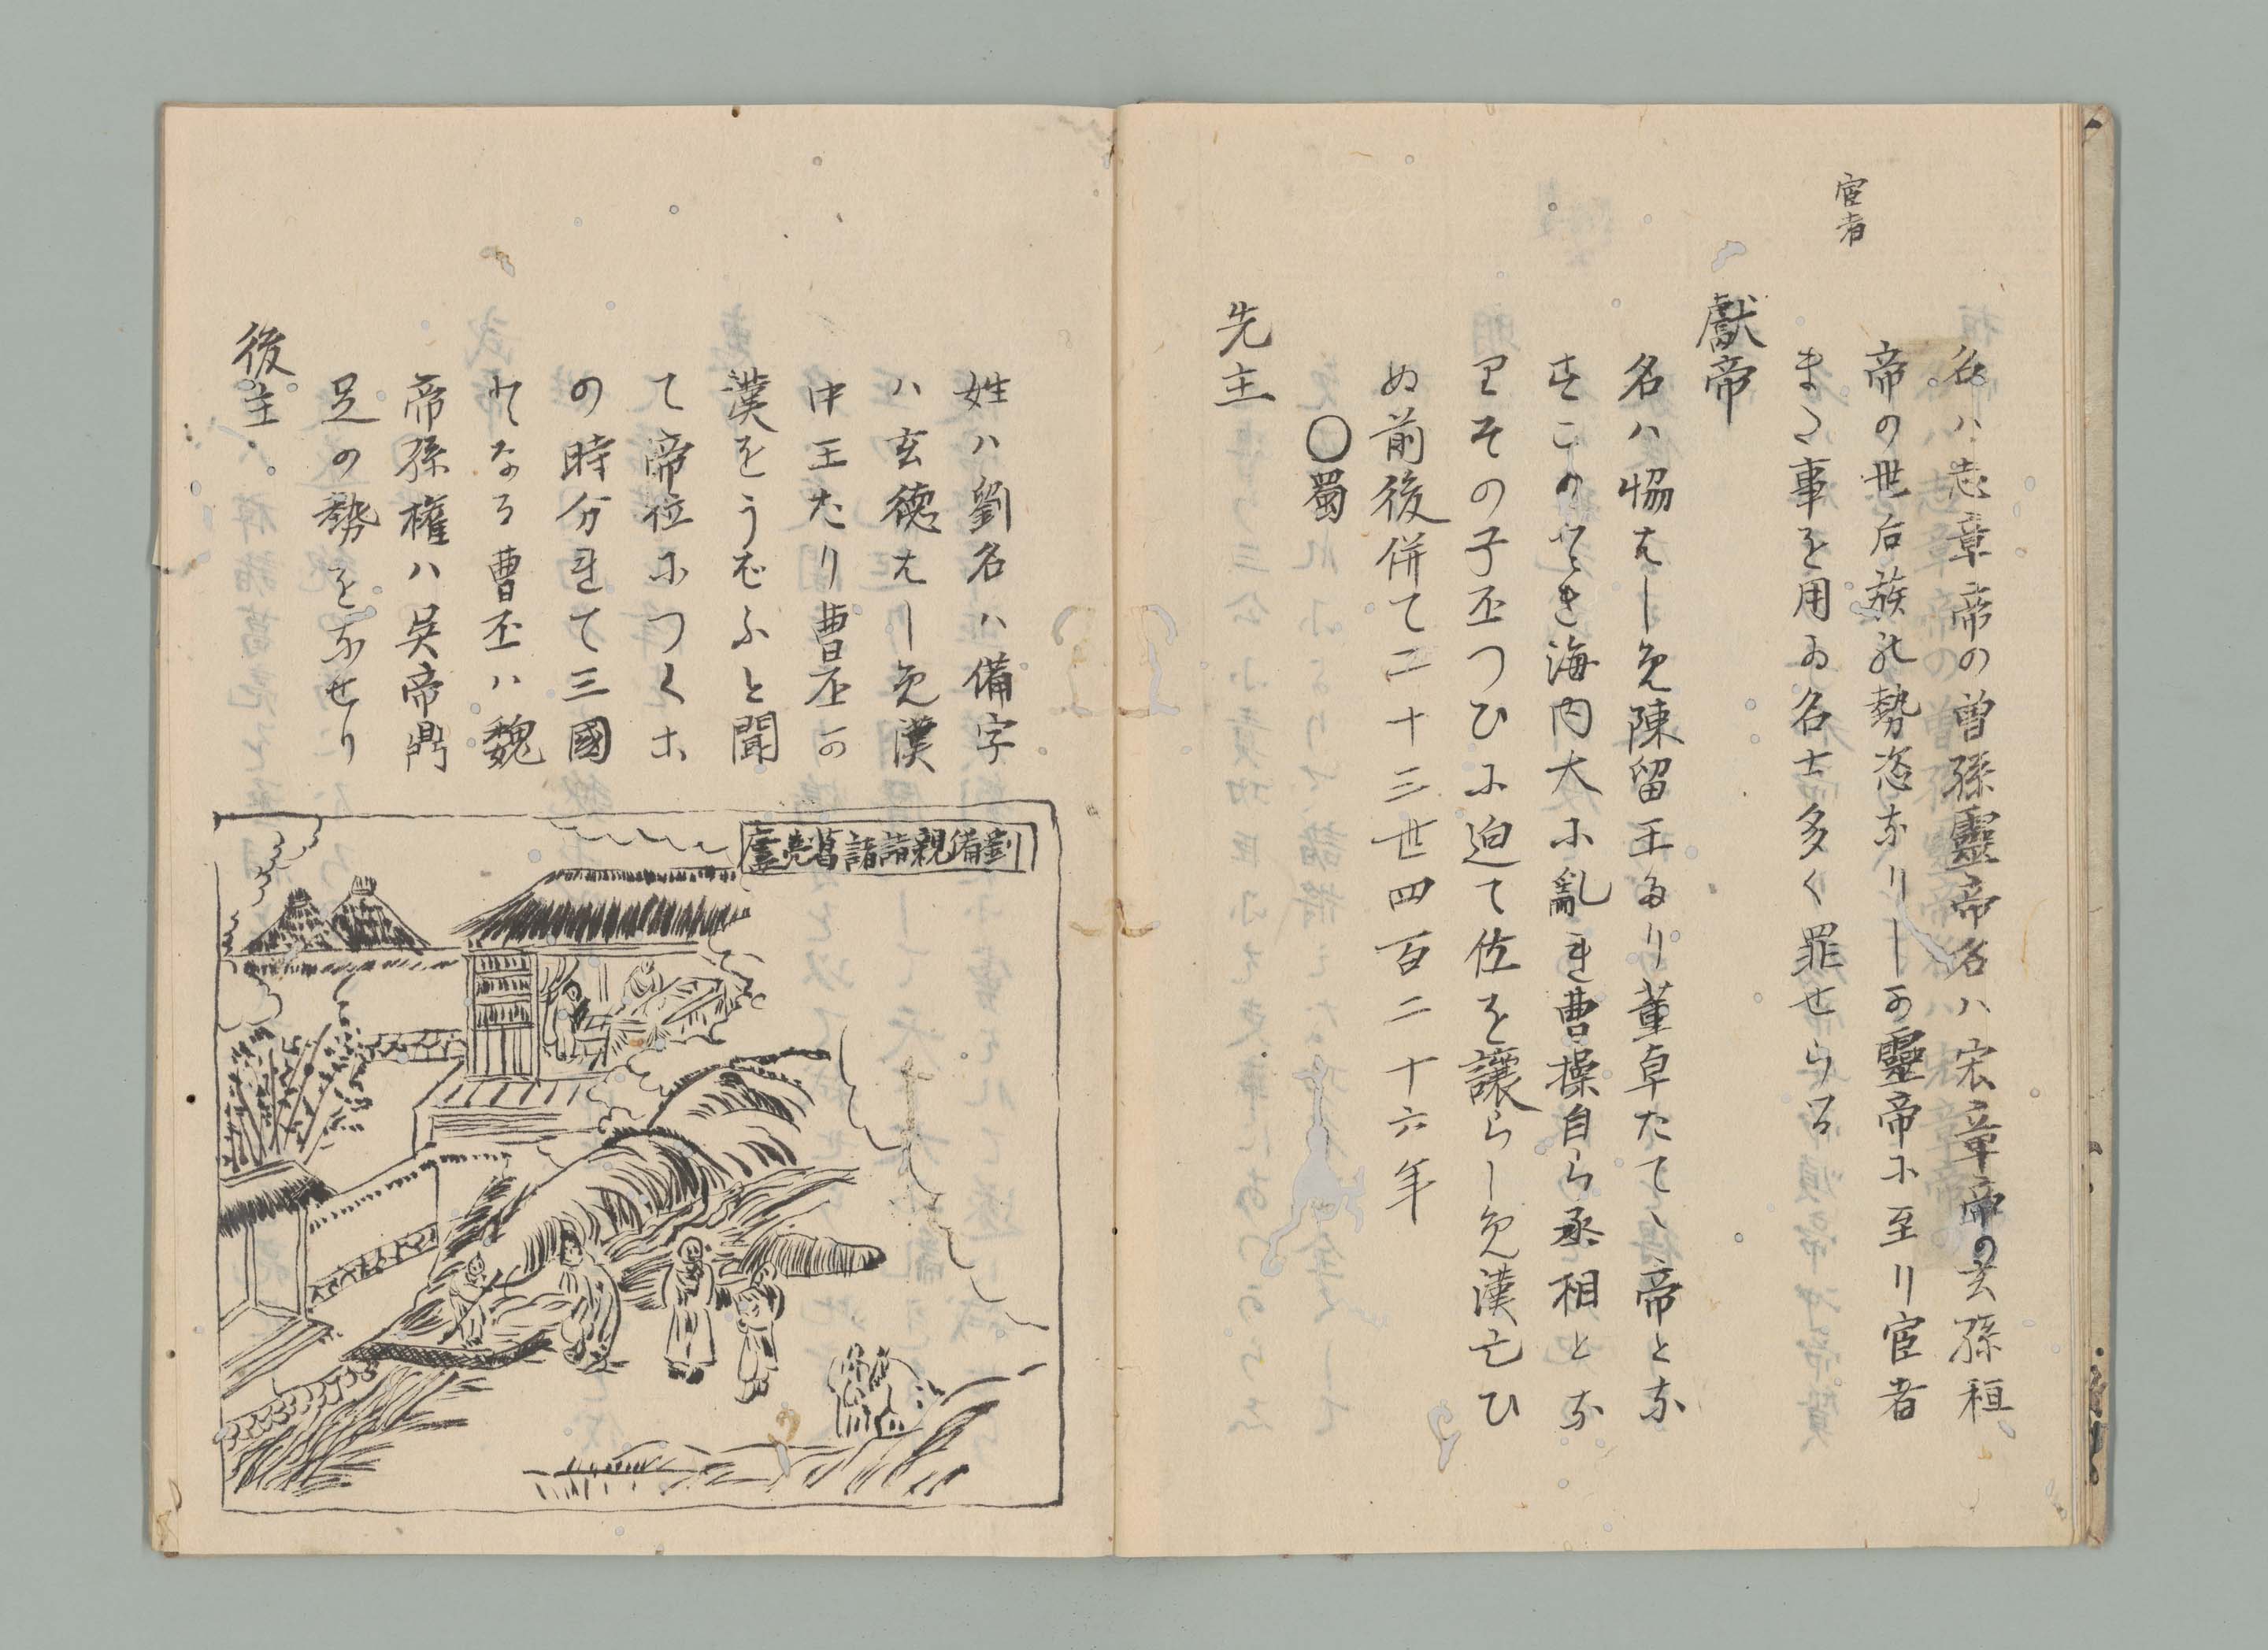 宦者
名ハ志章帝の曽孫靈帝名ハ宏章帝の玄孫桓
帝の世后族の勢恣なりしか靈帝に至り宦者
また事を用ゐ名士多く罪せらる
獻帝
名ハ協はしめ陳留王たり董卓たてゝ帝とな
すこのとき海内大に亂れ曹操自ら丞相とな
りその子丕つひに迫て位を讓らしめ漢亡ひ
ぬ前後併て二十三世四百二十六年
〇蜀
先主
姓ハ劉名ハ備字
ハ玄徳はしめ漢
中王たり曹丕か
漢をうばふと聞
て帝位につくこ
の時分れて三國
となる曹丕ハ魏
帝孫權ハ吴帝鼎
足の勢をなせり
劉備親請諸葛亮廬
後主